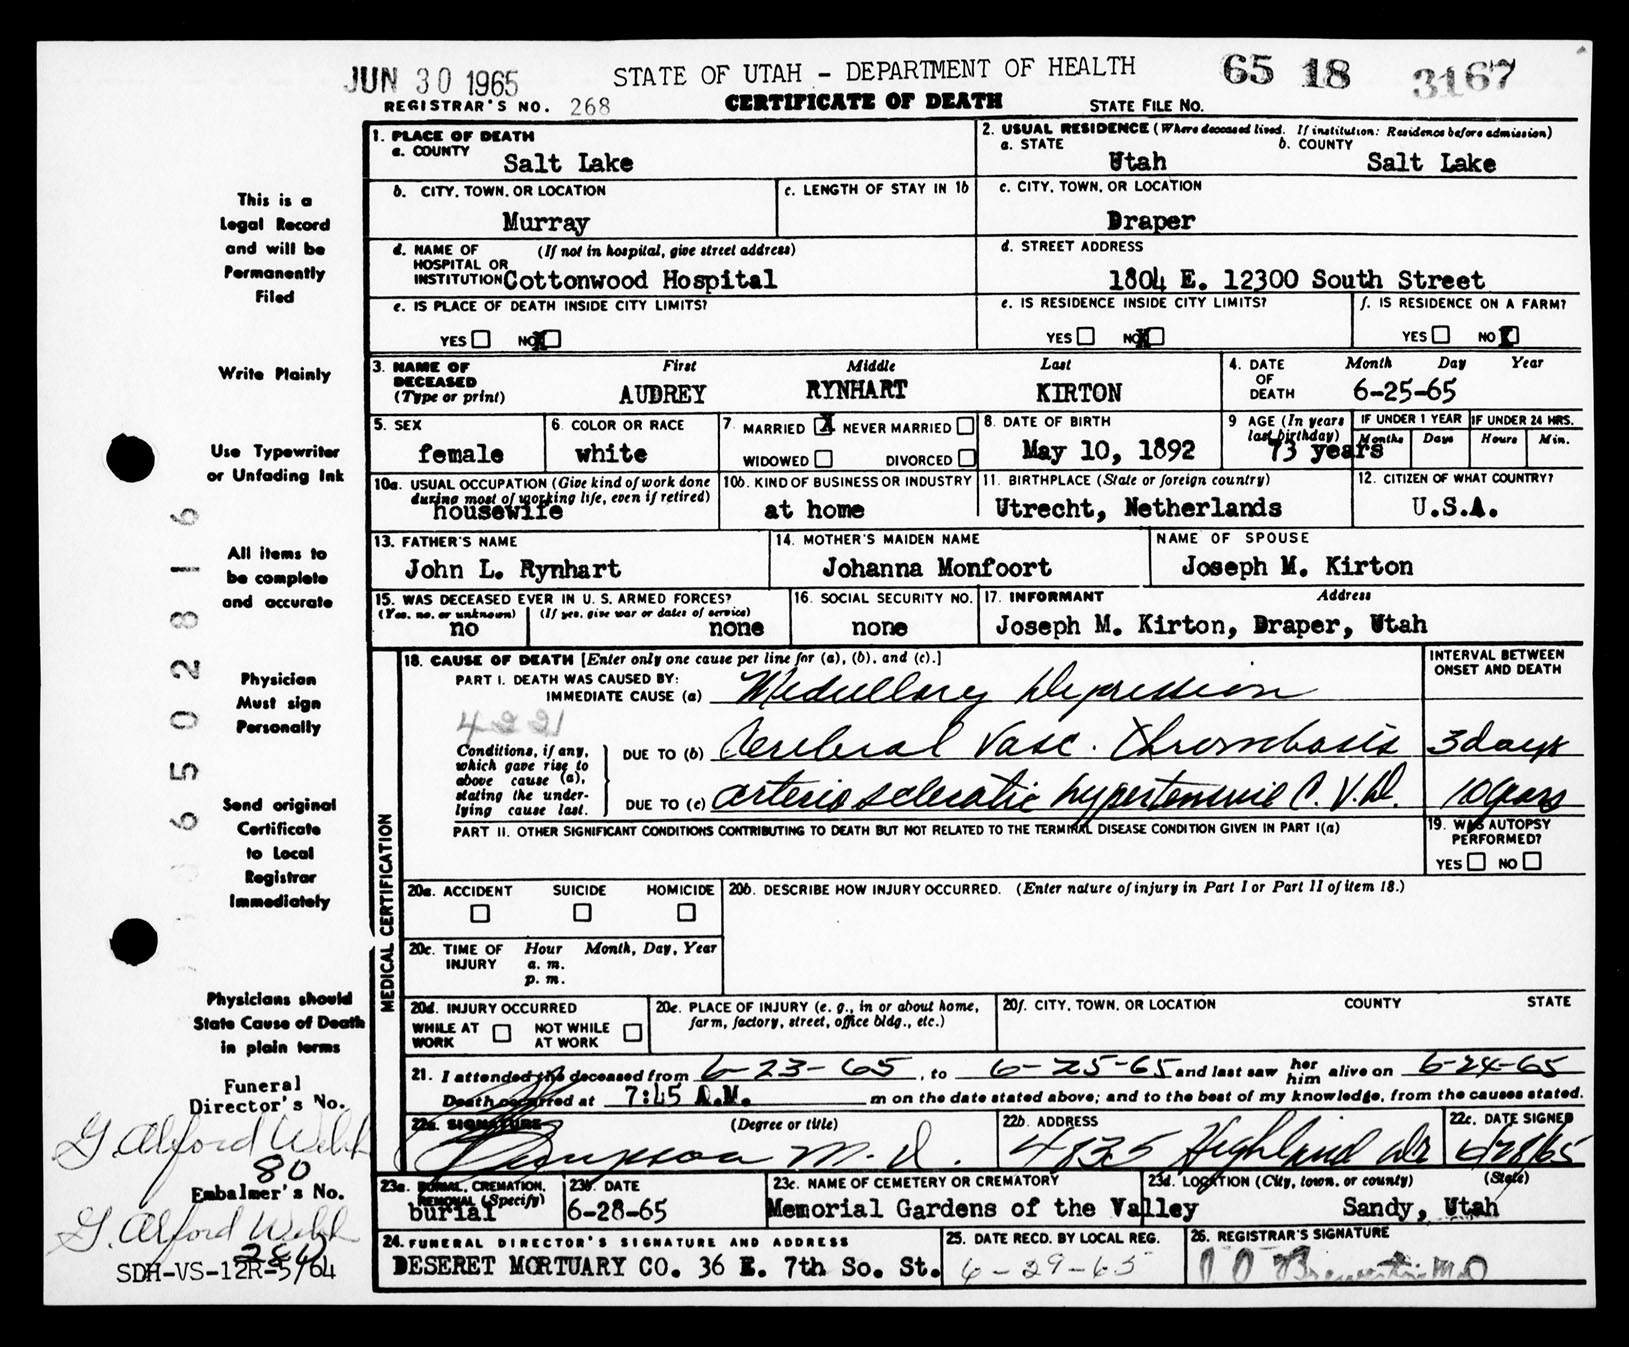 JUN 30 1965 STATE OF UTAH - DEPARTMENT OF HEALTH 65 18 3167
REGISTRAR'S NO. 268 CERTIFICATE OF DEATH STATE FILE NO.
1. PLACE OF DEATH
a. COUNTY Salt Lake
2. USUAL RESIDENCE (Where deceased lived. If institution: Residence before admission)
a. STATE Utah b. COUNTY Salt Lake
b. CITY, TOWN, OR LOCATION Murray
c. LENGTH OF STAY IN 1b
c. CITY, TOWN, OR LOCATION Draper
d. NAME OF HOSPITAL OR INSTITUTION (If not in hospital, give street address) Cottonwood Hospital
d. STREET ADDRESS 1804 E. 12300 South Street
e. IS PLACE OF DEATH INSIDE CITY LIMITS?
YES NO X
e. IS RESIDENCE INSIDE CITY LIMITS?
YES NO X
f. IS RESIDENCE ON A FARM?
YES NO X
3. NAME OF DECEASED (Type or print) First Middle Last
AUDREY RYNHART KIRTON
4. DATE OF DEATH Month Day Year
6-25-65
5. SEX female
6. COLOR OR RACE white
7. MARRIED X NEVER MARRIED
WIDOWED DIVORCED
8. DATE OF BIRTH May 10, 1892
9 AGE (In years last birthday) 73 years
IF UNDER 1 YEAR Months Days
IF UNDER 24 HRS. Hours Min.
10a. USUAL OCCUPATION (Give kind of work done during most of working life, even if retired) housewife
10b. KIND OF BUSINESS OR INDUSTRY at home
11. BIRTHPLACE (State or foreign country) Utrecht, Netherlands
12. CITIZEN OF WHAT COUNTRY? U.S.A.
13. FATHER'S NAME John L. Rynhart
14. MOTHER'S MAIDEN NAME Johanna Monfoort
NAME OF SPOUSE Joseph M. Kirton
15. WAS DECEASED EVER IN U. S. ARMED FORCES?
(Yes, no, or unknown) (If yes, give war or dates of service)
no none
16. SOCIAL SECURITY NO. none
17. INFORMANT Address
Joseph M. Kirton, Draper, Utah
MEDICAL CERTIFICATION
18. CAUSE OF DEATH [Enter only one cause per line for (a), (b), and (c).]
INTERVAL BETWEEN ONSET AND DEATH
PART I. DEATH WAS CAUSED BY:
IMMEDIATE CAUSE (a) Medullary Depression
4221
Conditions, if any, which gave rise to above cause (a), stating the underlying cause last.
DUE TO (b) Cerebral Vasc. Thrombosis 3 days
DUE TO (c) arterio sclerotic hypertensive C. V. D. 10 years
PART II. OTHER SIGNIFICANT CONDITIONS CONTRIBUTING TO DEATH BUT NOT RELATED TO THE TERMINAL DISEASE CONDITION GIVEN IN PART I(a)
19. WAS AUTOPSY PERFORMED?
YES NO
20a. ACCIDENT SUICIDE HOMICIDE
20b. DESCRIBE HOW INJURY OCCURRED. (Enter nature of injury in Part I or Part II of item 18.)
20c. TIME OF INJURY Hour Month, Day, Year
a. m.
p. m.
20d. INJURY OCCURRED
WHILE AT WORK NOT WHILE AT WORK
20e. PLACE OF INJURY (e. g., in or about home, farm, factory, street, office bldg., etc.)
20f. CITY, TOWN, OR LOCATION COUNTY STATE
21. I attended the deceased from 6-23-65, to 6-25-65 and last saw her him alive on 6-24-65
Death occurred at 7:45 A.M. m on the date stated above; and to the best of my knowledge, from the causes stated.
22a. SIGNATURE (Degree or title)
M. D.
22b. ADDRESS 4835 Highland Dr
22c. DATE SIGNED 6/28/65
23a. BURIAL, CREMATION, REMOVAL (Specify) burial
23b. DATE 6-28-65
23c. NAME OF CEMETERY OR CREMATORY Memorial Gardens of the Valley
23d. LOCATION (City, town, or county) (State)
Sandy, Utah
24. FUNERAL DIRECTOR'S SIGNATURE AND ADDRESS
DESERET MORTUARY CO. 36 E. 7th So. St.
25. DATE RECD. BY LOCAL REG. 6-29-65
26. REGISTRAR'S SIGNATURE
This is a
Legal Record
and will be
Permanently
Filed
Write Plainly
Use Typewriter
or Unfading Ink
All items to
be complete
and accurate
Physician
Must sign
Personally
Send original
Certificate
to Local
Registrar
Immediately
Physicians should
State Cause of Death
in plain terms
Funeral
Director's No.
G. Alford Webb
80
Embalmer's No.
G. Alford Webb
SDH-VS-12R-5/64